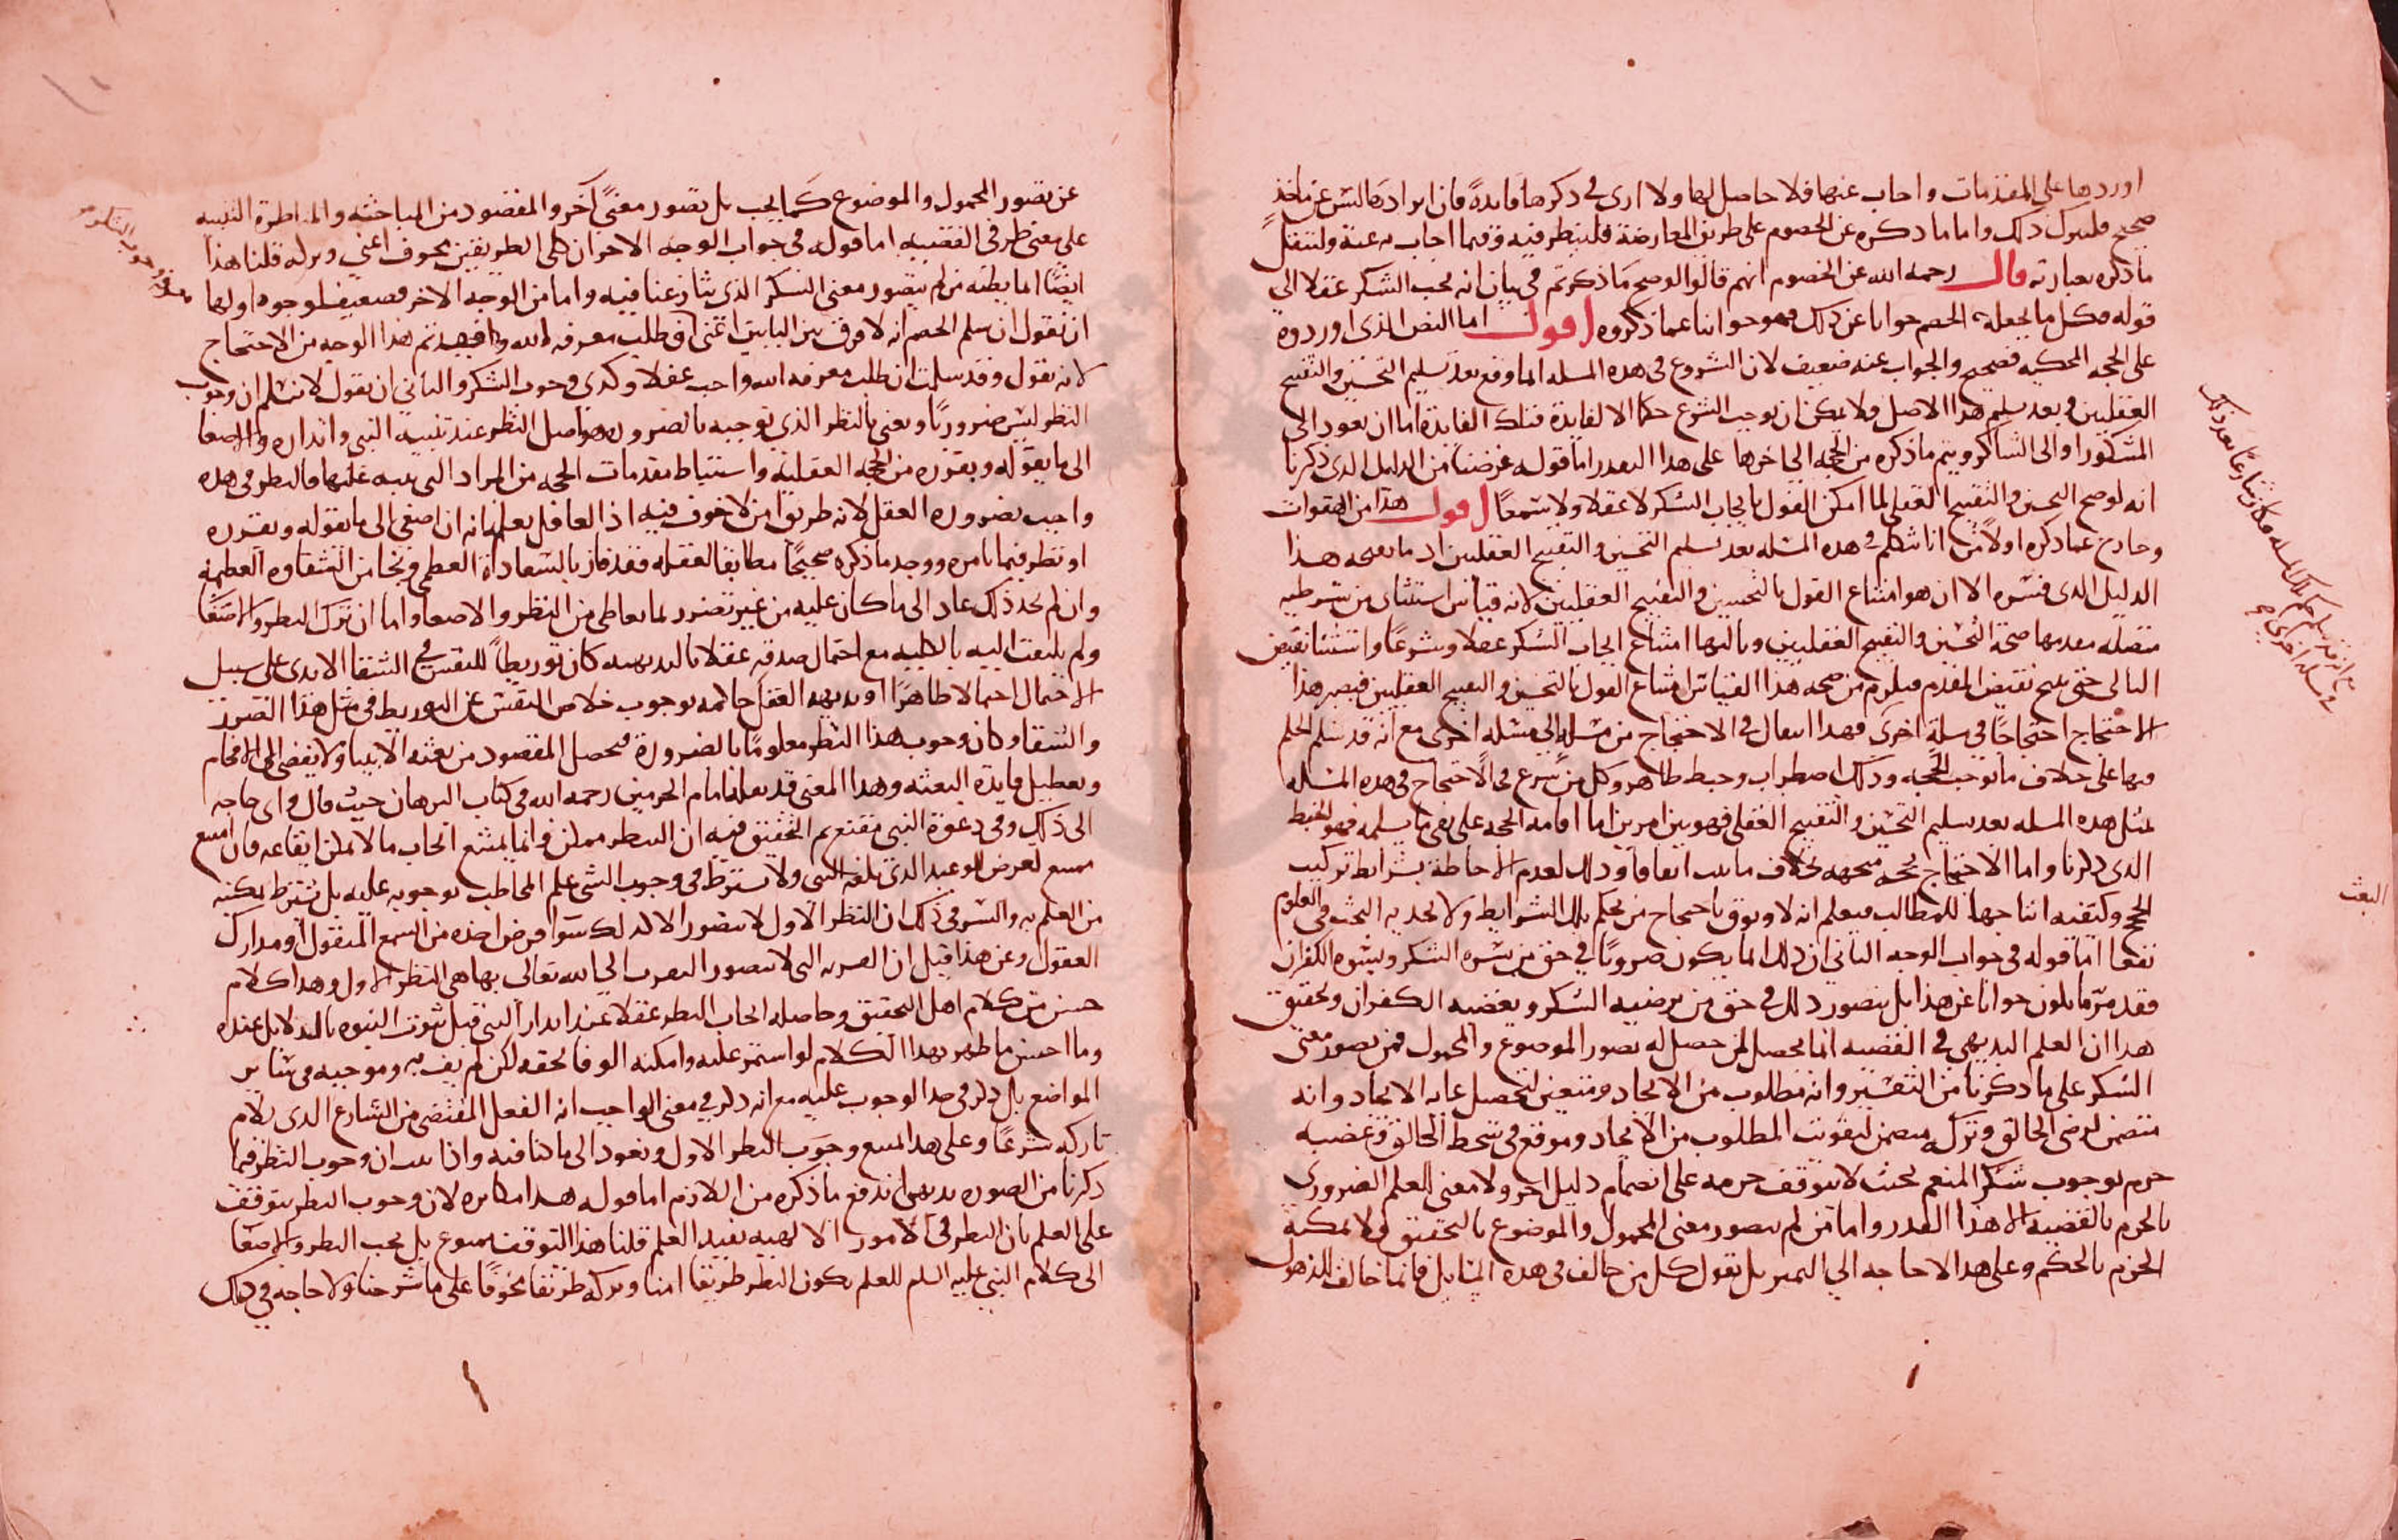 اوردها على المقدمات واجاب عنها فلا حاصل لها ولا ارى في ذكرها فايدة فان ايرادها ليس عن ماخذ
صحيح فليترك ذلك واما ما ذكره عن الخصوم على طريق المعارضة فلينظر فيه وفيما اجاب به عنه ولننقل
ما ذكره بعبارته قال رحمه الله عن الخصوم انهم قالوا لو صح ما ذكرتم في بيان انه لا يجب الشكر عقلا الى
قوله فكل ما يجعله الخصم جوابا عن ذلك فهو جوابنا عما ذكروه اقول اما النص الذى اوردوه
على الحجه المحكيه فصحيح والجواب عنه ضعيف لان الشروع في هذه المسله انما وقع بعد تسليم التحسين والتقبيح
العقليين وبعد تسليم هذا الاصل فلا يمكن ان يوجب الشرع حكما الا لفايدة فتلك الفايدة اما ان تعود الى
المشكور او الى الشاكر ويتم ما ذكره من الحجه الى اخرها على هذا التقدير اما قوله غرضنا من الدليل الذى ذكرنا
انه لو صح التحسين والتقبيح العقلى لما امكن القول بايجاب الشكر لا عقلا ولا سمعا اقول هذا من الهفوات
وخارج عما ذكره اولا من انا نتكلم في هذه المسله بعد تسليم التحسين والتقبيح العقليين اد ما هذا
الدليل الدى فسره الا ان هو امتناع القول بالتحسين والتقبيح العقليين لانه قياس استثنائى من شرطيه
متصله مقدمها صحة التحسين والتقبيح العقليين وتاليها امتناع ايجاب الشكر عقلا وشرعا واستثنا نقيض
التالى حتى ينتج نقيض المقدم فيلزم من صحه هذا القياس امتناع القول بالتحسين والتقبيح العقليين فيصير هذا
الاحتجاج احتجاجا في مسلة اخرى فهذا انتقال في الاحتجاج من مسله الى مسله اخرى مع انه قد سلم الحكم
فيها على خلاف ما توجب الحجه وذلك اضطراب وخبط ظاهر وكل من شرع في الاحتجاج في هذه المسله
لمثل هذه المسله بعد تسليم التحسين والتقبيح العقلى فهو بين امرين اما اقامه الحجه على نفى ما يسلمه فهو الخبط
الذى ذكرنا واما الاحتجاج بحجه متجهه بخلاف ما ثبت اتفاقا وذلك لعدم الاحاطة بشرايط تركيب
الحجج وكيفيه انتاجها للمطالب فيعلم انه لا وثوق باحتجاج من يحكم بتلك الشرايط ولا يجديه البحث في العلوم
نفعا اما قوله في جواب الوجه الثانى ان ذلك انما يكون ضروريا في حق من يسره الشكر ويسوه الكفران
فقد مر ما يكون جوابا عن هذا بل يتصور ذلك في حق من يرضيه الشكر ويغضبه الكفران وتحقيق
هذا ان العلم البديهي في القضيه انما يحصل لمن حصل له تصور الموضوع والمحمول فمن تصور معنى
الشكر على ما ذكرنا من التفسير وانه مطلوب من الايجاد ومتعين لتحصيل غايه الايجاد وانه
متضمن لرضى الخالق وتركه متضمن لتفويت المطلوب من الايجاد وموقع في سخط الخالق وغضبه
جزم بوجوب شكر المنعم بحيث لا يتوقف جزمه على انضمام دليل اخر ولا معنى للعلم الضرورى
بالجزم بالقضيه الا هذا القدر واما من لم يتصور معنى المحمول والموضوع بالتحقيق فلا يمكنه
الجزم بالحكم وعلى هذا لا حاجه الى التمييز بل نقول كل من خالف في هذه المسايل فانما خالف للذهول
البحث
عن تصور المحمول والموضوع كما يجب بل تصور معنى آخر والمقصود من المباحثه والمناظرة التنبيه
على معنى طرفى القضيه اما قوله في جواب الوجه الاخر ان كلى الطريقين مخوف اعنى وتركه قلنا هذا
ايضا انما يظنه من لم يتصور معنى الشكر الذى تنازعنا فيه واما من الوجه الاخر فضعيف لوجوه اولها
ان نقول ان سلم الخصم انه لا فرق بين البابين اعنى في طلب معرفه الله يتم هذا الوجه من الاحتجاج
لانه يقول وقد سلمت ان طلب معرفه الله واجب عقلا وكذى وجوب الشكر والثانى ان نقول لا نسلم ان وجوب
النظر ليس ضروريا ونعنى بالنظر الذى نوجبه بالضروره هو اصل النظر عند تنبيه النبى وانذاره والاصغا
الى ما يقوله ويقرره من الحجه العقليه واستنباط مقدمات الحجه من المراد التى ينبه عليها فالنظر في هذه
واجب بضروره العقل لانه طريق امن لا خوف فيه اذ العاقل يعلم انه ان اصغى الى ما يقوله ويقرره
او نظر فيما يامره ووجد ما ذكره صحيحا مطابقا لعقله فقد فاز بالسعادة العظمى ونجا من الشقاوه العظيمه
وان لم يجد ذلك عاد الى ما كان عليه من غير تضرر لما تعاطى من النظر والاصغا واما ان ترك النظر والاصغا
ولم يلتفت اليه بالكليه مع احتمال صدقه عقلا بالبديهه كان توريطا للنفس في الشقا الابدى على سبيل
الاحتمال احتمالا ظاهرا وبديهه العقل حاكمه بوجوب خلاص النفس عن التوريط في مثل هذا الضرر
والشقا وكان وجوب هذا النظر معلوما بالضرورة فحصل المقصود من بعثه الانبيا ولا يفضى الى الافحام
وتعطيل فايدة البعثه وهذا المعنى قد نقله امام الحرمين رحمه الله في كتاب البرهان حيث قال واى حاجه
الى ذلك وفى دعوة النبى مقنع ثم التحقيق فيه ان النظر ممكن وانما يمتنع ايجاب ما لا يمكن ايقاعه فان امتنع
ممتنع تعرض للوعيد الذى بلغه النبى ولا يشترط في وجوب الشى علم المخاطب بوجوبه عليه بل يشترط تمكنه
من العلم به والسر في ذلك ان النظر الاول لا يتصور الا كذلك سوا فرض اخذه من السمع المنقول او مدارك
العقول وعن هذا قيل ان القربه التى لا يتصور التقرب الى الله تعالى بها هى النظر الاول وهذا كلام
حسن من كلام اهل التحقيق وحاصله ايجاب النظر عقلا عند انذار النبى قبل ثبوت النبوه بالدلايل عنده
وما احسن ما ظهر بهذا الكلام لو استمر عليه وامكنه الوفا بحقه لكن لم يف به وموجبه في ساير
المواضع بل ذكر في حد الوجوب عليه مع انه ذكر في معنى الواجب انه الفعل المقتضى من الشارع الذى يلام
تاركه شرعا وعلى هذا امتنع وجوب النظر الاول ونعود الى ما كنا فيه واذا ثبت ان وجوب النظر فيما
ذكرنا من الصوره بديهى اندفع ما ذكره من اللازم اما قوله هذا مكابره لان وجوب النظر يتوقف
على العلم بان النظر في الامور الالهيه يفيد العلم قلنا هذا التوقف ممنوع بل يجب النظر والاصغا
الى كلام النبى عليه السلم للعلم بكون النظر طريقا امنا وتركه طريقا مخوفا على ما شرحنا ولا حاجه في ذلك